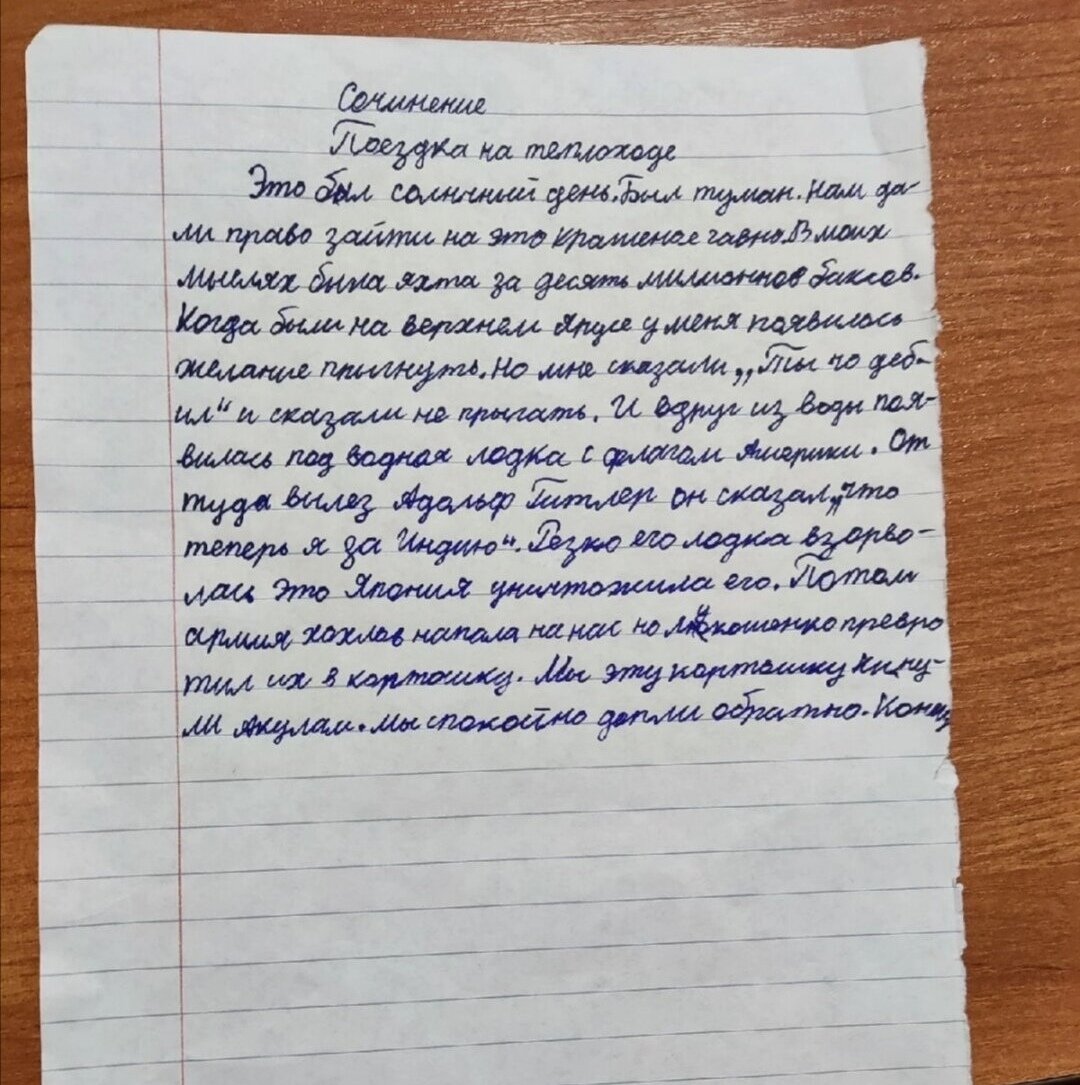 Сочинение
Поездка на теплоходе
Это был солнчний день. Был туман. Нам да-
ли право зайти на это крашеное гавно. В моих
мыслях была яхта за десять милмионнов баксов.
Когда были на верхнем ярусе у меня появилось
желание прыгнуть. Но мне сказали „Ты чо деб-
ил“ и сказали не прыгать. И вдруг из воды поя-
вилась под водная лодка с флагом Америки. От
туда вылез Адольф Гитлер он сказал „что
теперь я за Индию“. Резко его лодка взорво-
лась это Япония уничтожила его. Потом
армия хохлов напала на нас но Лукошенко превро
тил их в картошку. Мы эту картошку кину-
ли акулам. Мы спокойно допли обратно. Конец